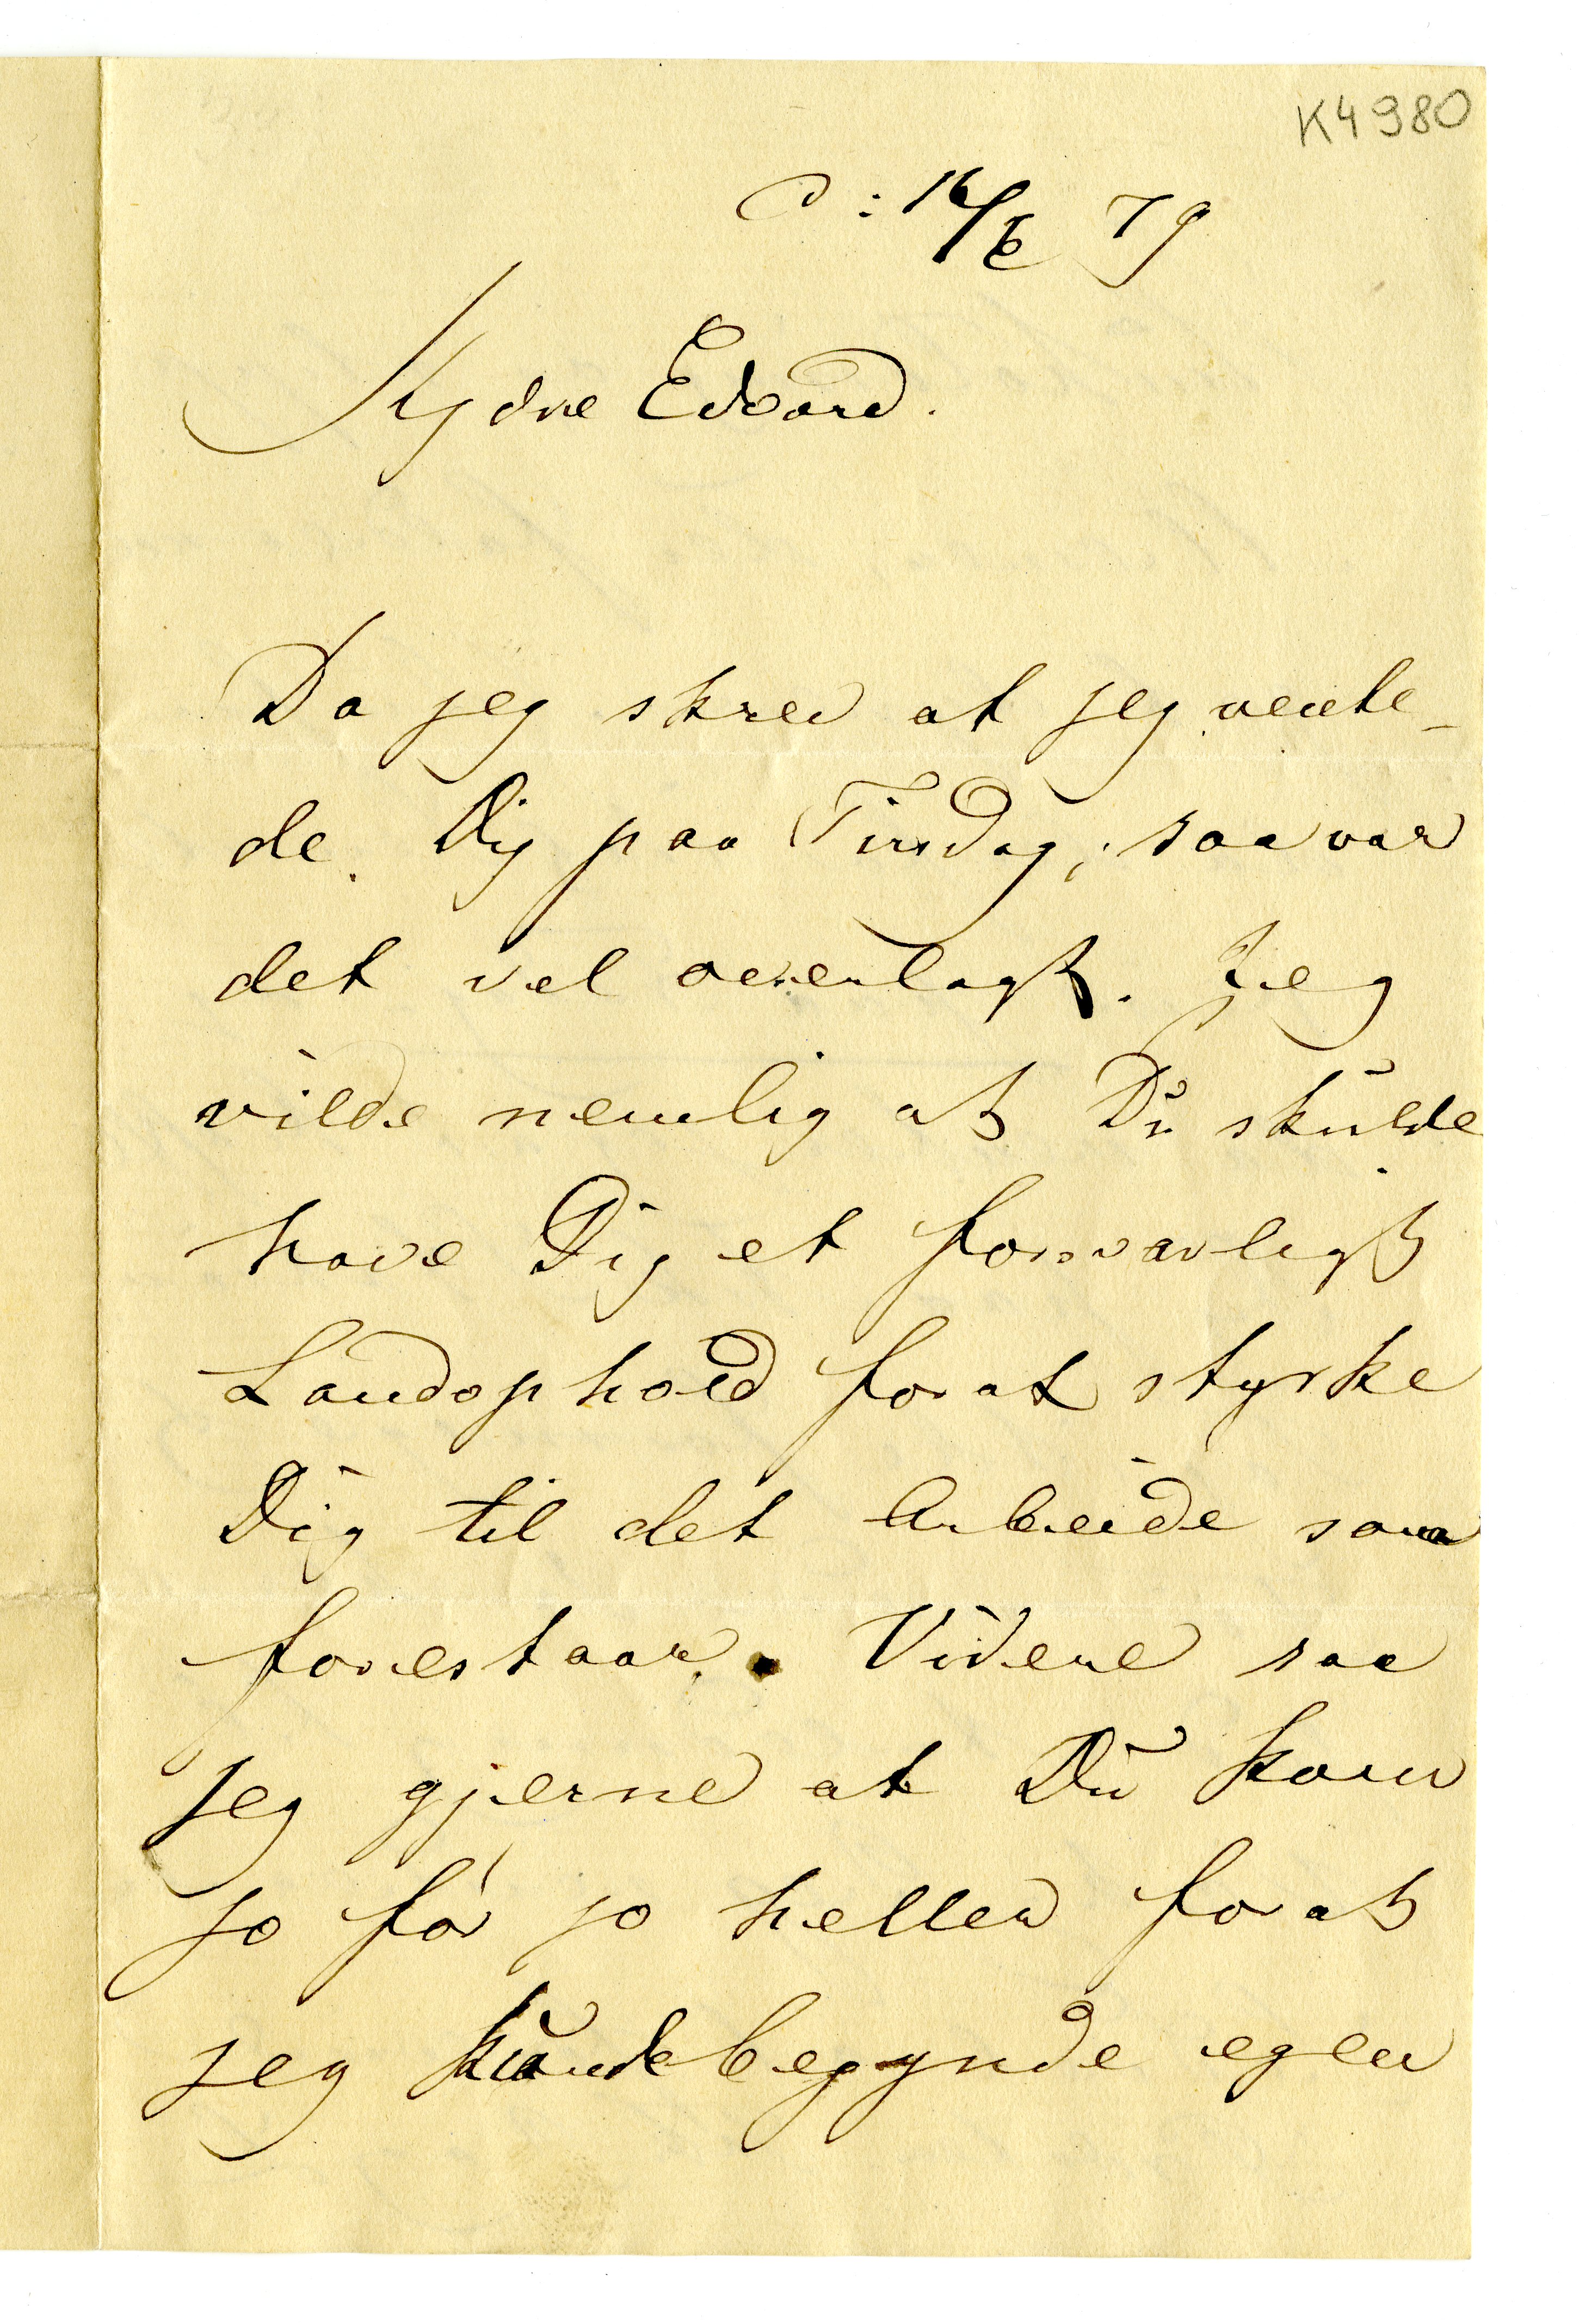 K4980
C: 16/6 79
Kjære Edvard.
Da jeg skrev at jeg vente-
de Dig paa Tirsdag, saa var
det vel overlagt. Jeg
vilde nemlig at Du skulde
have Dig et forsvarligt
Landophold for at styrke
Dig til det Arbeide som
forestaar. Videre saa
jeg gjerne at Du kom
jo før jo heller for at
jeg kunde begynde egen